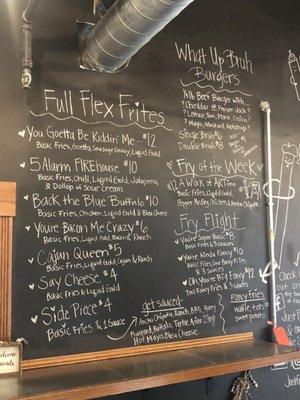 Full Flex Frites
You Gotta Be Kiddin' Me ~ $12
Basic Fries, Gravy, Liquid Gold
5 Alarm FIREhouse $10
Basic Fries, Chili, Liquid Gold, Jalapeno
& Dollop of Sour Cream
Back the Blue Buffalo $10
Basic Fries, Chicken, Liquid Gold & Blue Cheese
You're Bacon Me Crazy $6
Basic Fries, Liquid Gold, Bacon & Ranch
Cajun Queen $5
Basic Fries, Liquid Gold, Cajun & Ranch
Say Cheese $4
Basic Fries & Liquid Gold
Side Piece $4
Basic Fries & 1 Sauce
get sauced!
Ancho Chipotle, Ranch, BBQ, Honey
Mustard, Buffalo, Tartar, Aioli
Hot Mayo, Bleu Cheese
What Up Bruh
Burgers
1/4 lb Beef Burger with...
? Cheddar or Pepper Jack?
? Lettuce, Tom, Pickle, Onion?
? Mayo, Mustard, Ketchup?
Single Bruh $6
Double Bruh $8
Fry of the Week
$12 A Work of ARTino
Basic Fries,
Pepper Medley
Fry Flight
You're Super Basic $5
Basic Fries & 3 sauces
You're Kinda Fancy $10
Basic Fries, One Fancy Fries
& 3 sauces
Oh, You're Big Fancy $12
Two Fancy Fries & 3 Sauces
fancy fries
waffle, tots,
sweet potato